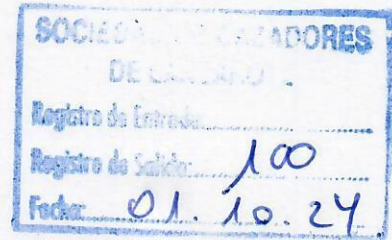 SOCIEDAD DE CAZADORES
DE
Registro de Entrada:
Registro de Salida: 100
Fecha: 01.10.24